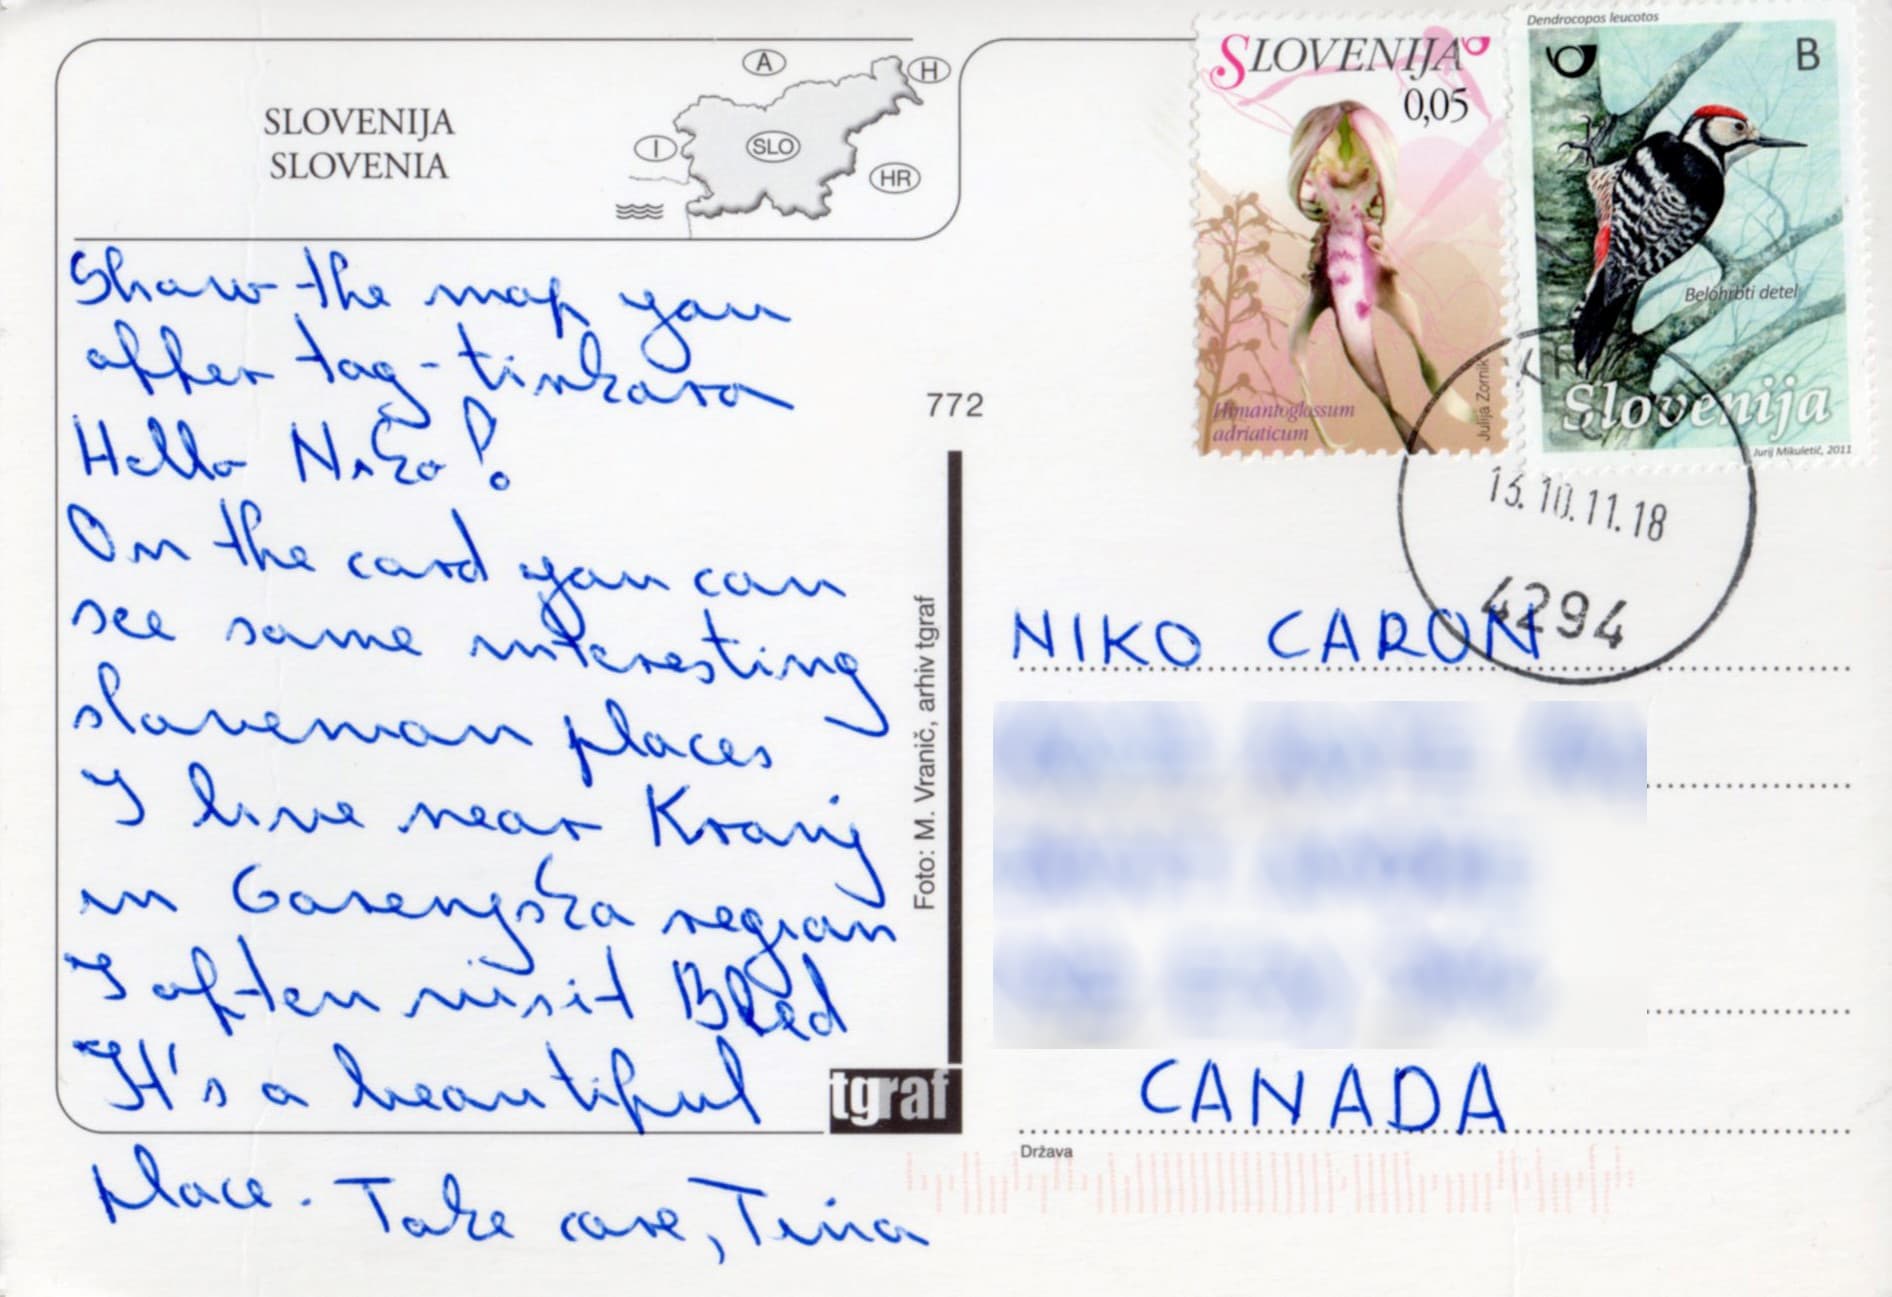 SLOVENIJA
SLOVENIA
A
H
I
SLO
HR
Show the map you
offer tag - tinkara
Hello Niko!
On the card you can
see some interesting
slovenian places
I live near Kranj
in Gorenjska region
I often visit Bled
It's a beautiful
place. Take care, Tina
772
Foto: M. Vranič, arhiv tgraf
tgraf
SLOVENIJA
0,05
Himantoglossum
adriaticum
Julija Zornik
Dendrocopos leucotos
B
Belohrbti detel
Slovenija
Jurij Mikuletič, 2011
13.10.11.18
4294
NIKO CARON
CANADA
Država